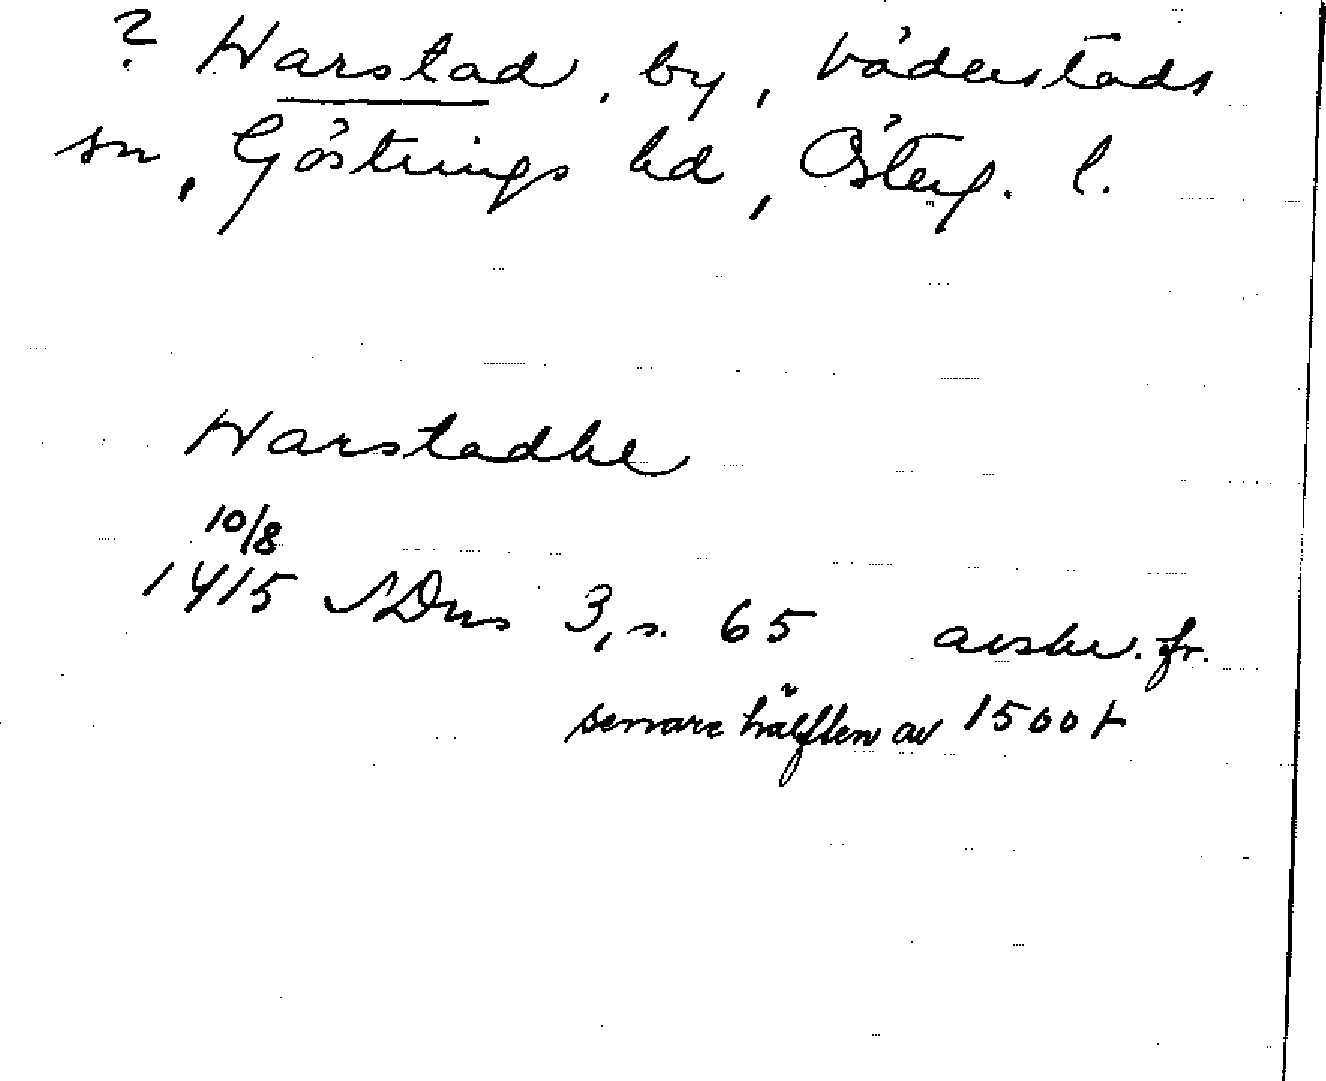 ? Harstad, by, Väderstads
sn, Göstrings hd, Österg. l.
Harstadhe
10/8
1415 SDns 3, s. 65 avskr. fr.
senare hälften av 1500 t